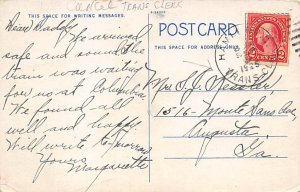 POSTCARD
THIS SPACE FOR WRITING MESSAGES.
THIS SPACE FOR ADDRESS ONLY.
Dear Daddy
We arrived
safe and sound. The
train was waiting
for us at Columbia
We found all
well and happy.
Will write tomorrow
Yours
Margarette
Mrs S. J. Kessler
1516 - Monte Sano Ave
Augusta,
Ga.
1928
TRANS. CLERK
2 CENTS 2